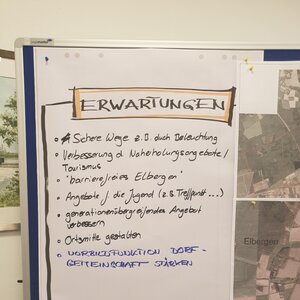 ERWARTUNGEN
Sichere Wege z.B. durch Beleuchtung
Verbesserung d. Naherholungsangebote/
Tourismus
"barrierefreies Elbergen"
Angebote f. die Jugend (z.B. Treffpunkt ...)
generationenübergreifendes Angebot
verbessern
Ortsmitte gestalten
VORBILDFUNKTION DORF-
GEMEINSCHAFT STÄRKEN
Elbergen